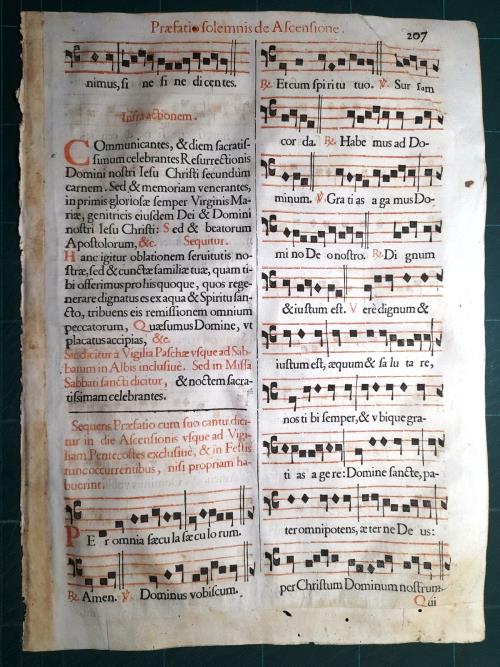 Præfatio solemnis de Ascensione.
207
nimus, si ne fi ne di centes.
Infra actionem.
COmmunicantes, & diem sacratis-
simum celebrantes Resurrectionis
Domini nostri Iesu Christi secundùm
carnem. Sed & memoriam venerantes,
in primis gloriosæ semper Virginis Ma-
riæ, genitricis eiusdem Dei & Domini
nostri Iesu Christi: Sed & beatorum
Apostolorum, &c. Sequitur.
Hanc igitur oblationem seruitutis no-
stræ, sed & cunctæ familiæ tuæ, quam ti-
bi offerimus pro his quoque, quos rege-
nerare dignatus es ex aqua & Spiritu san-
cto, tribuens eis remissionem omnium
peccatorum, Quæsumus Domine, vt
placatus accipias, &c.
Sic dicitur à Vigilia Paschæ vsque ad Sab-
batum in Albis inclusiuè. Sed in Missa
Sabbati sancti dicitur, & noctem sacra-
tissimam celebrantes.
Sequens Præfatio cum suo cantu dici-
tur in die Ascensionis vsque ad Vigi-
liam Pentecostes exclusiuè, & in Festis
tunc occurrentibus, nisi propriam ha-
buerint.
PEr omnia sæcu la sæcu lo rum.
℟. Amen. ℣. Dominus vobiscum.
℟. Et cum spi ri tu tuo. ℣. Sur sum
cor da. ℟. Habe mus ad Do-
minum. ℣. Gra ti as a ga mus Do-
mi no De o nostro. ℟. Di gnum
& iustum est. Verè dignum &
iustum est, æquum & sa lu ta re,
nos ti bi semper, & v bique gra-
ti as a ge re: Domine sancte, pa-
ter omnipotens, æ ter ne De us:
per Christum Dominum nostrum.
Qui